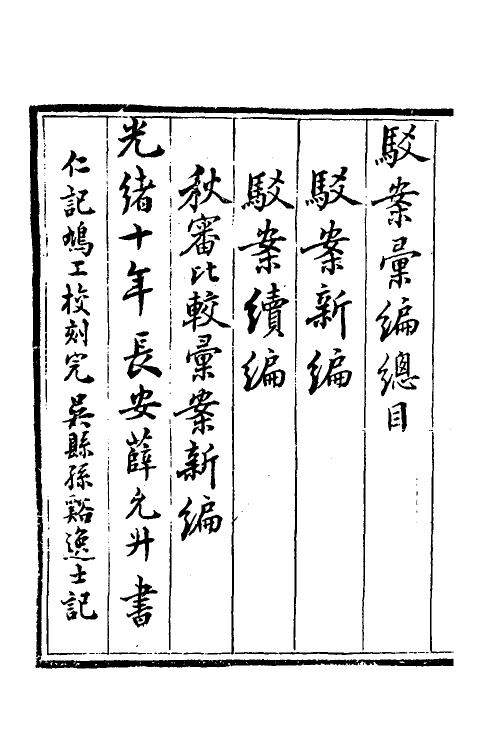 駁案彙編總目
駁案新編
駁案續編
秋審比較彙案新編
光緒十年長安薛允升書
仁記鳩工校刻完吳縣孫谿逸士記